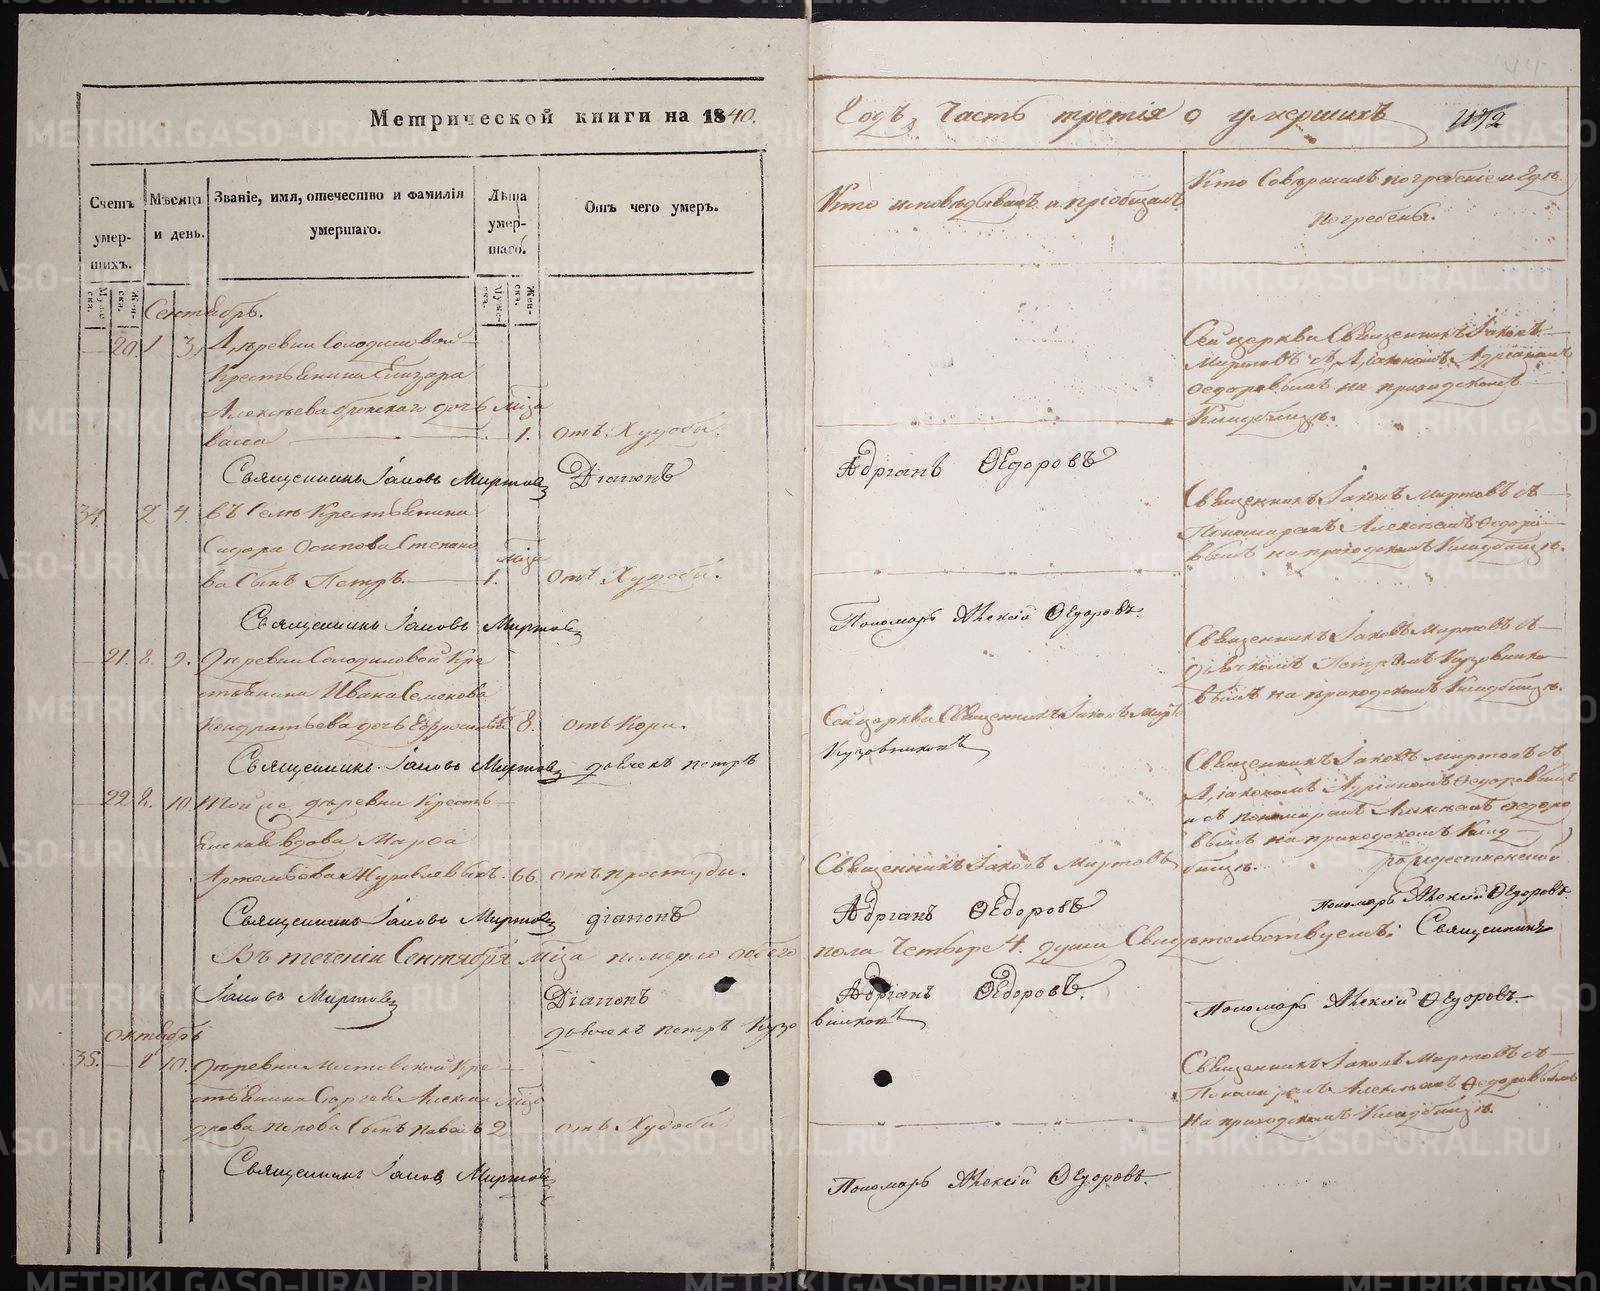 Метрической книги на 1840.
Годъ, Часть третія о умершихъ
Счетъ умер-шихъ.
Мѣсяцъ и день.
Званіе, имя, отечество и фамилія умершаго.
Лѣта умер-шаго.
Отъ чего умеръ.
Кто исповѣдывалъ и пріобщалъ
Кто Совершилъ погребеніе и гдѣ
погребены.
Муже-ска.
Жен-ска.
Муже-ска.
Жен-ска.
Сентябрь.
20. 1 3, Деревни Солодиловой
Крестьянина Елизара
Алексѣева дочь Мѣся
васса 1. отъ Худобы.
Сей церкви Священникъ Іаковъ
Миртовъ съ Діакономъ Адріаномъ
Ѳедоровымъ на приходскомъ
Кладбищѣ.
Священникъ Іаковъ Миртовъ Діаконъ
Адріанъ Ѳедоровъ
34. 2 4. въ Селѣ Крестьянина
Сидора Осипова Степано
ва Сынъ Петръ. 1. отъ Худобы.
Священникъ Іаковъ Миртовъ съ
Пономаремъ Алексѣемъ Ѳедоро
вымъ на приходскомъ Кладбищѣ.
Священникъ Іаковъ Миртовъ
Пономарь Алексій Ѳедоровъ
21. 8. 9. Деревни Солодиловой Кре
стьянина Ивана Семенова
Кондратьева дочь 8. отъ Кори.
Сей церкви Священникъ Іаковъ
Священникъ Іаковъ Миртовъ съ
дьячкомъ Петромъ Кузовнико
вымъ на приходскомъ Кладбищѣ.
Священникъ Іаковъ Миртовъ дьячекъ петръ
Кузовниковъ
22 8. 10 Той же деревни Кресть
янская вдова Марѳа
Артемьева Журавлевыхъ. 66. отъ простуды.
Священникъ Іаковъ Миртовъ
Священникъ Іаковъ Миртовъ съ
Діакономъ Адріаномъ Ѳедоровымъ
и съ пономаремъ Алексѣемъ Ѳедоро
вымъ на приходскомъ Клад
бищѣ.
Священникъ Іаковъ Миртовъ діаконъ
Адріанъ Ѳедоровъ
пономарь Алексій Ѳедоровъ
Въ теченіи Сентября Мѣся померло обоего
пола Четыре 4. души Свидѣтельствуемъ: Священникъ
Іаковъ Миртовъ Діаконъ
Адріанъ Ѳедоровъ.
Пономарь Алексій Ѳедоровъ.
дьячекъ петръ Кузо
вниковъ
Октябрь
35. 8 10. Деревни Мостовской Кре
стьянина Сергѣя Алексан
дрова попова Сынъ Павелъ 2 отъ Худобы
Священникъ Іаковъ Миртовъ съ
Пономаремъ Алексѣемъ Ѳедоровымъ
на приходскомъ Кладбищѣ.
Священникъ Іаковъ Миртовъ
Пономарь Алексій Ѳедоровъ.
METRIKI.GASO-URAL.RU